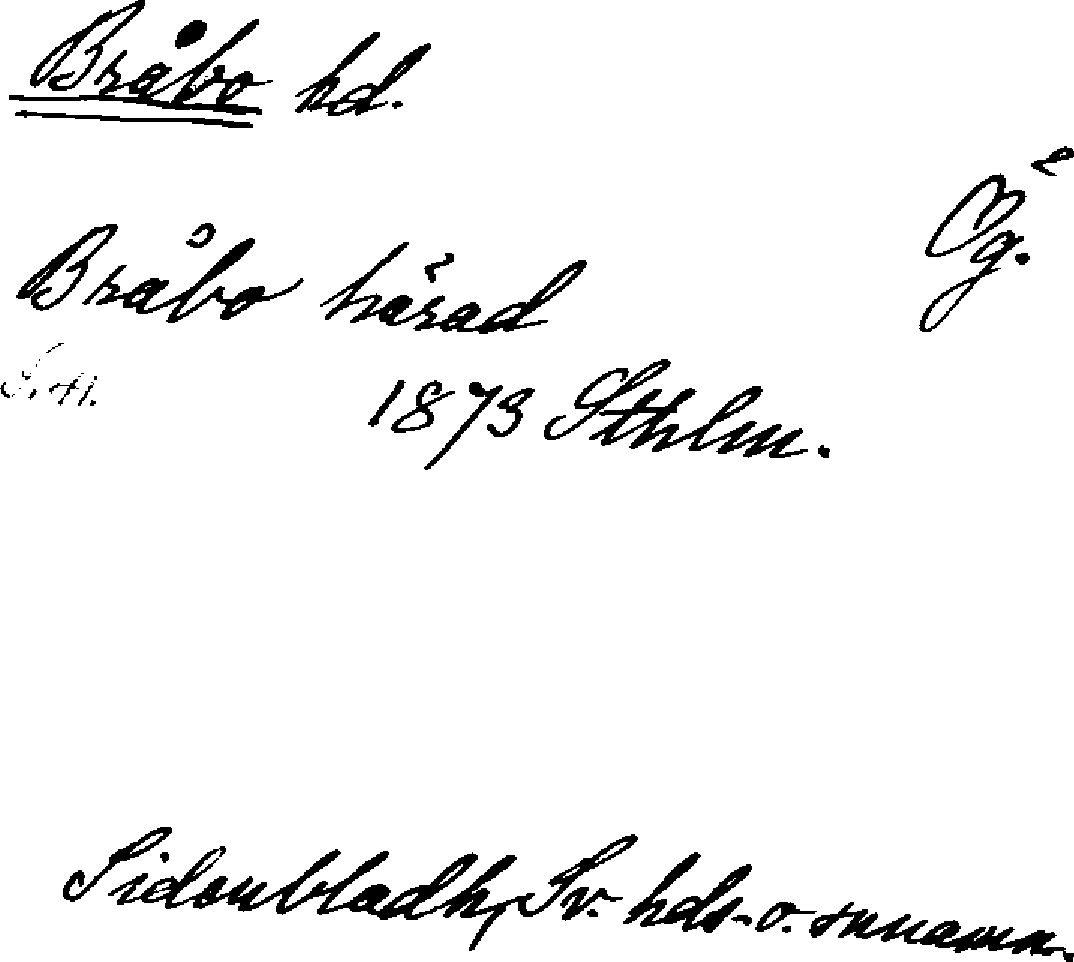 Bråbo hd.
Ög.
Bråbo härad
S. 41.
1873 Sthlm.
Sidenbladh, Sv. hds- o. snnamn.